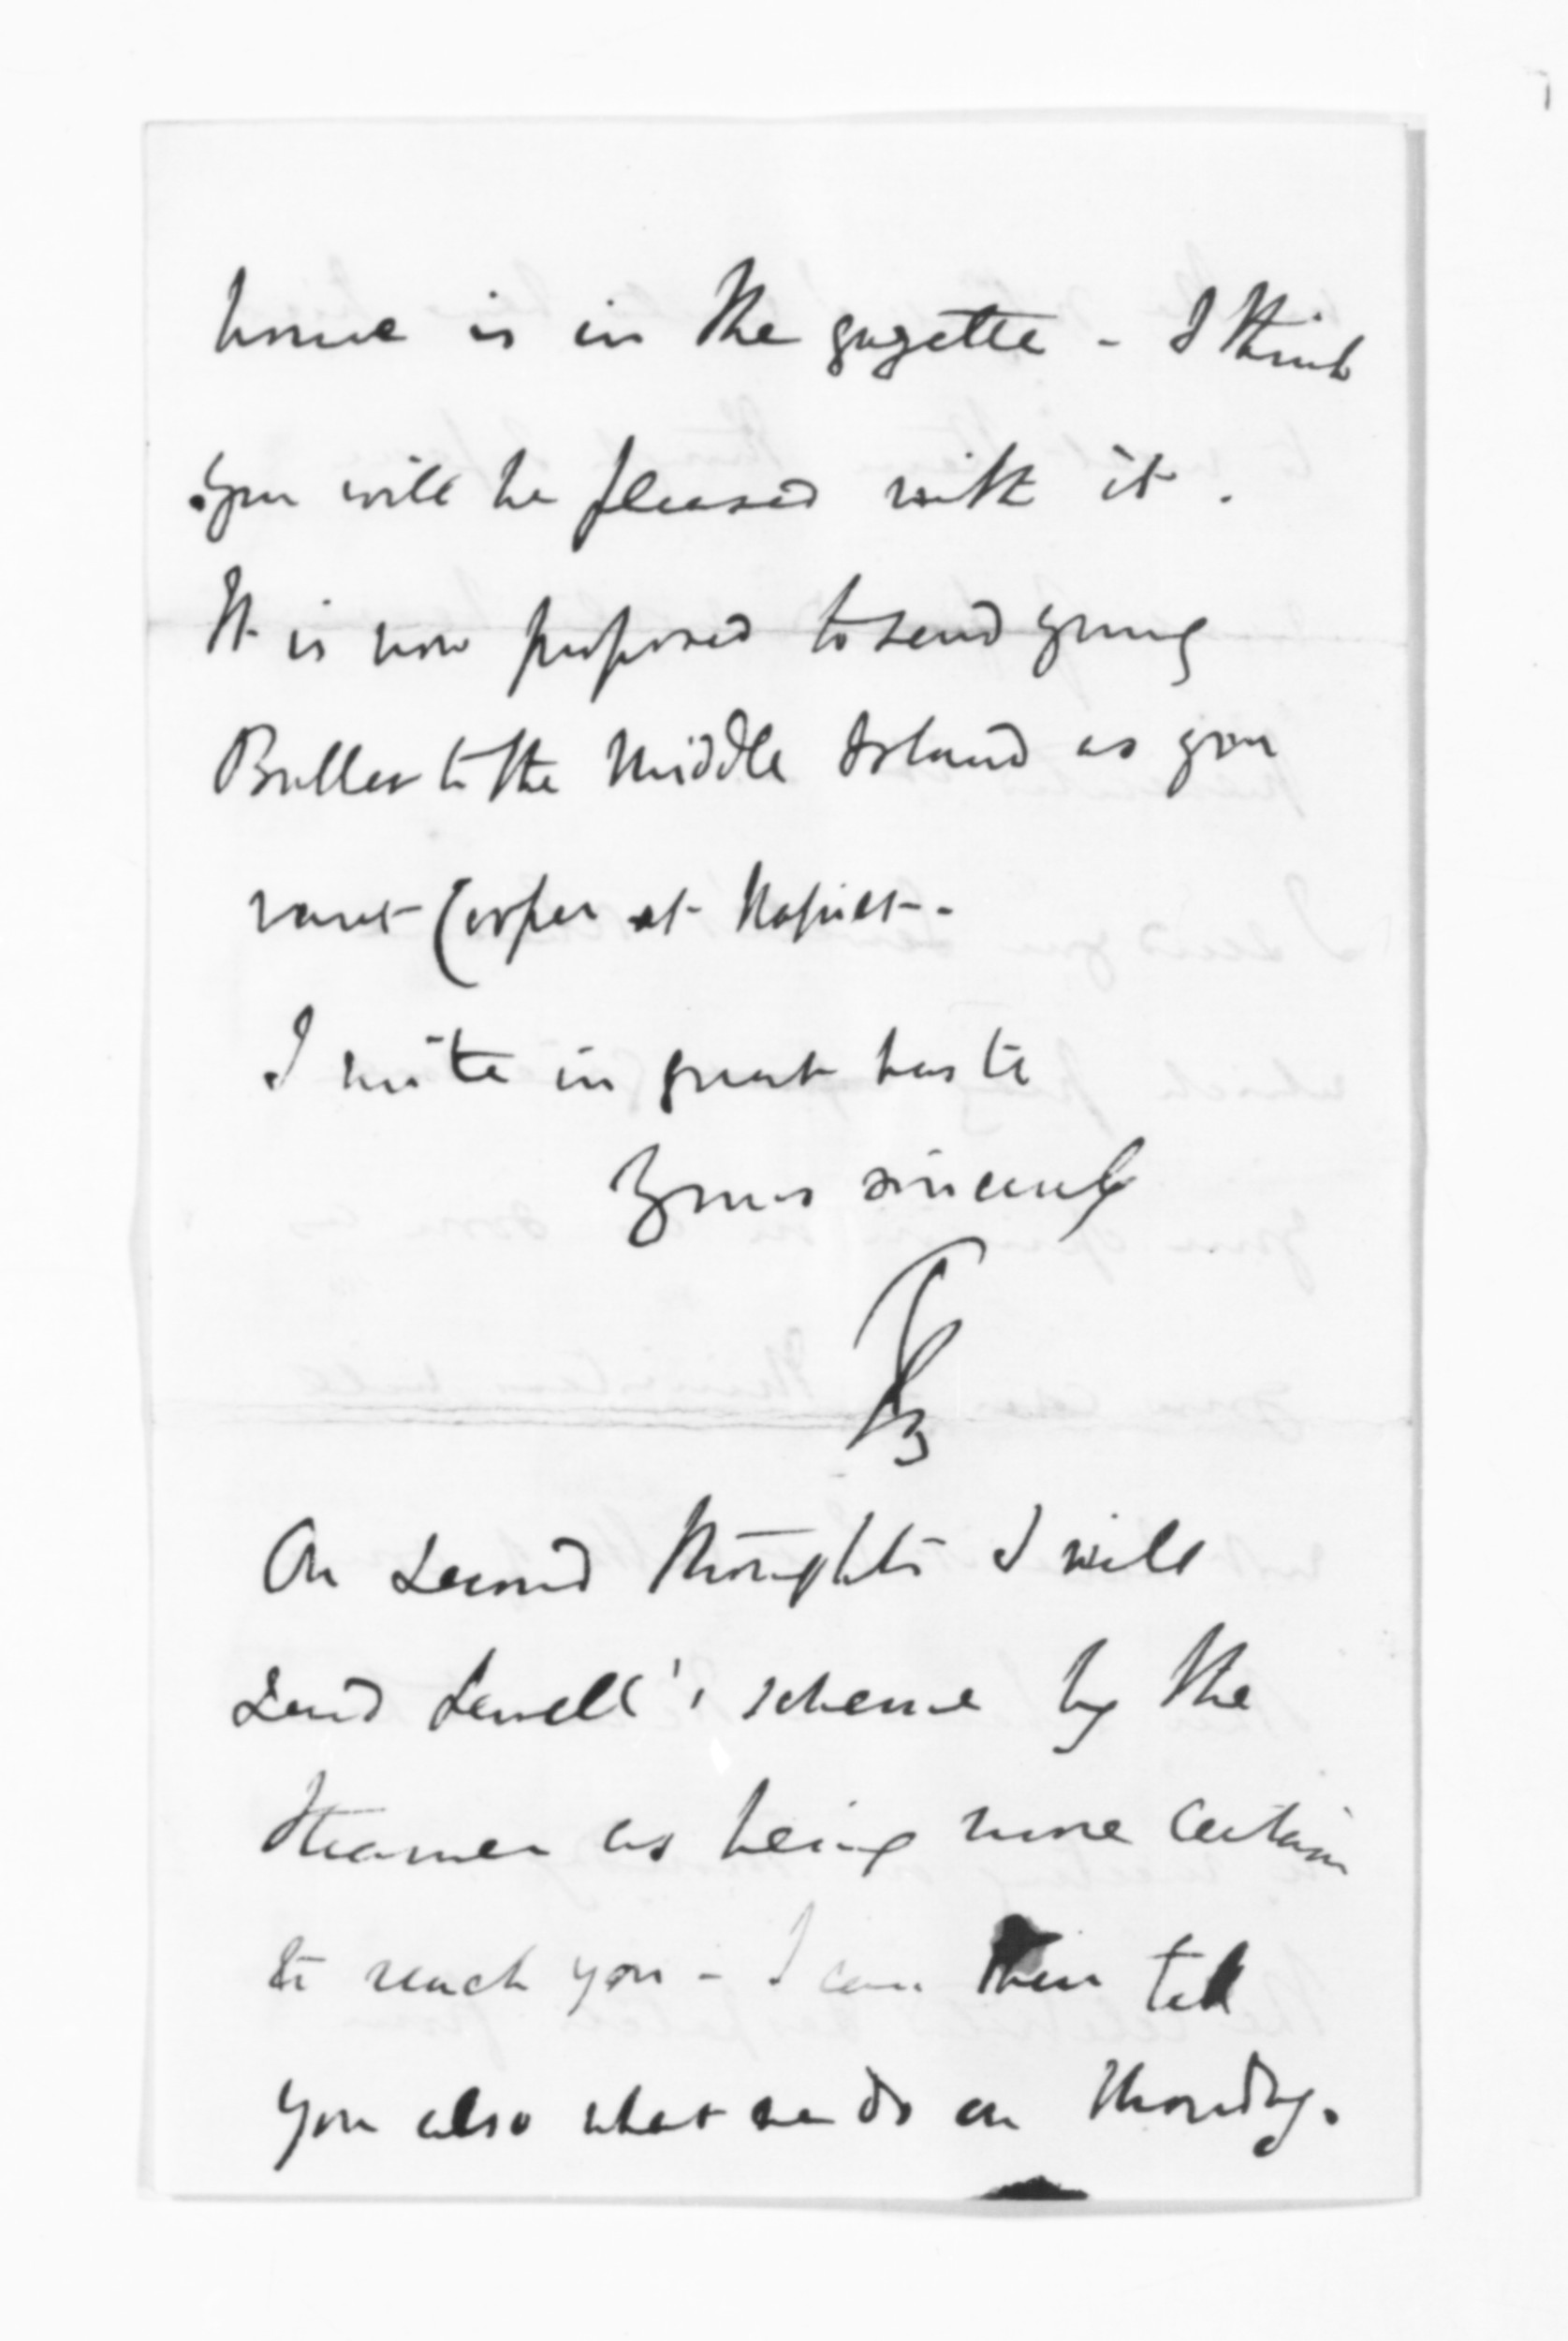 home is in the gazette - I think
you will be pleased with it.
It is now proposed to send young
Buller to the Middle Island as you
want Cooper at Napier -
I write in great haste
Yours sincerely
On second thoughts I will
send Sewell's scheme by the
Steamer as being more certain
to reach you - I can then tell
you also what we do on Monday.